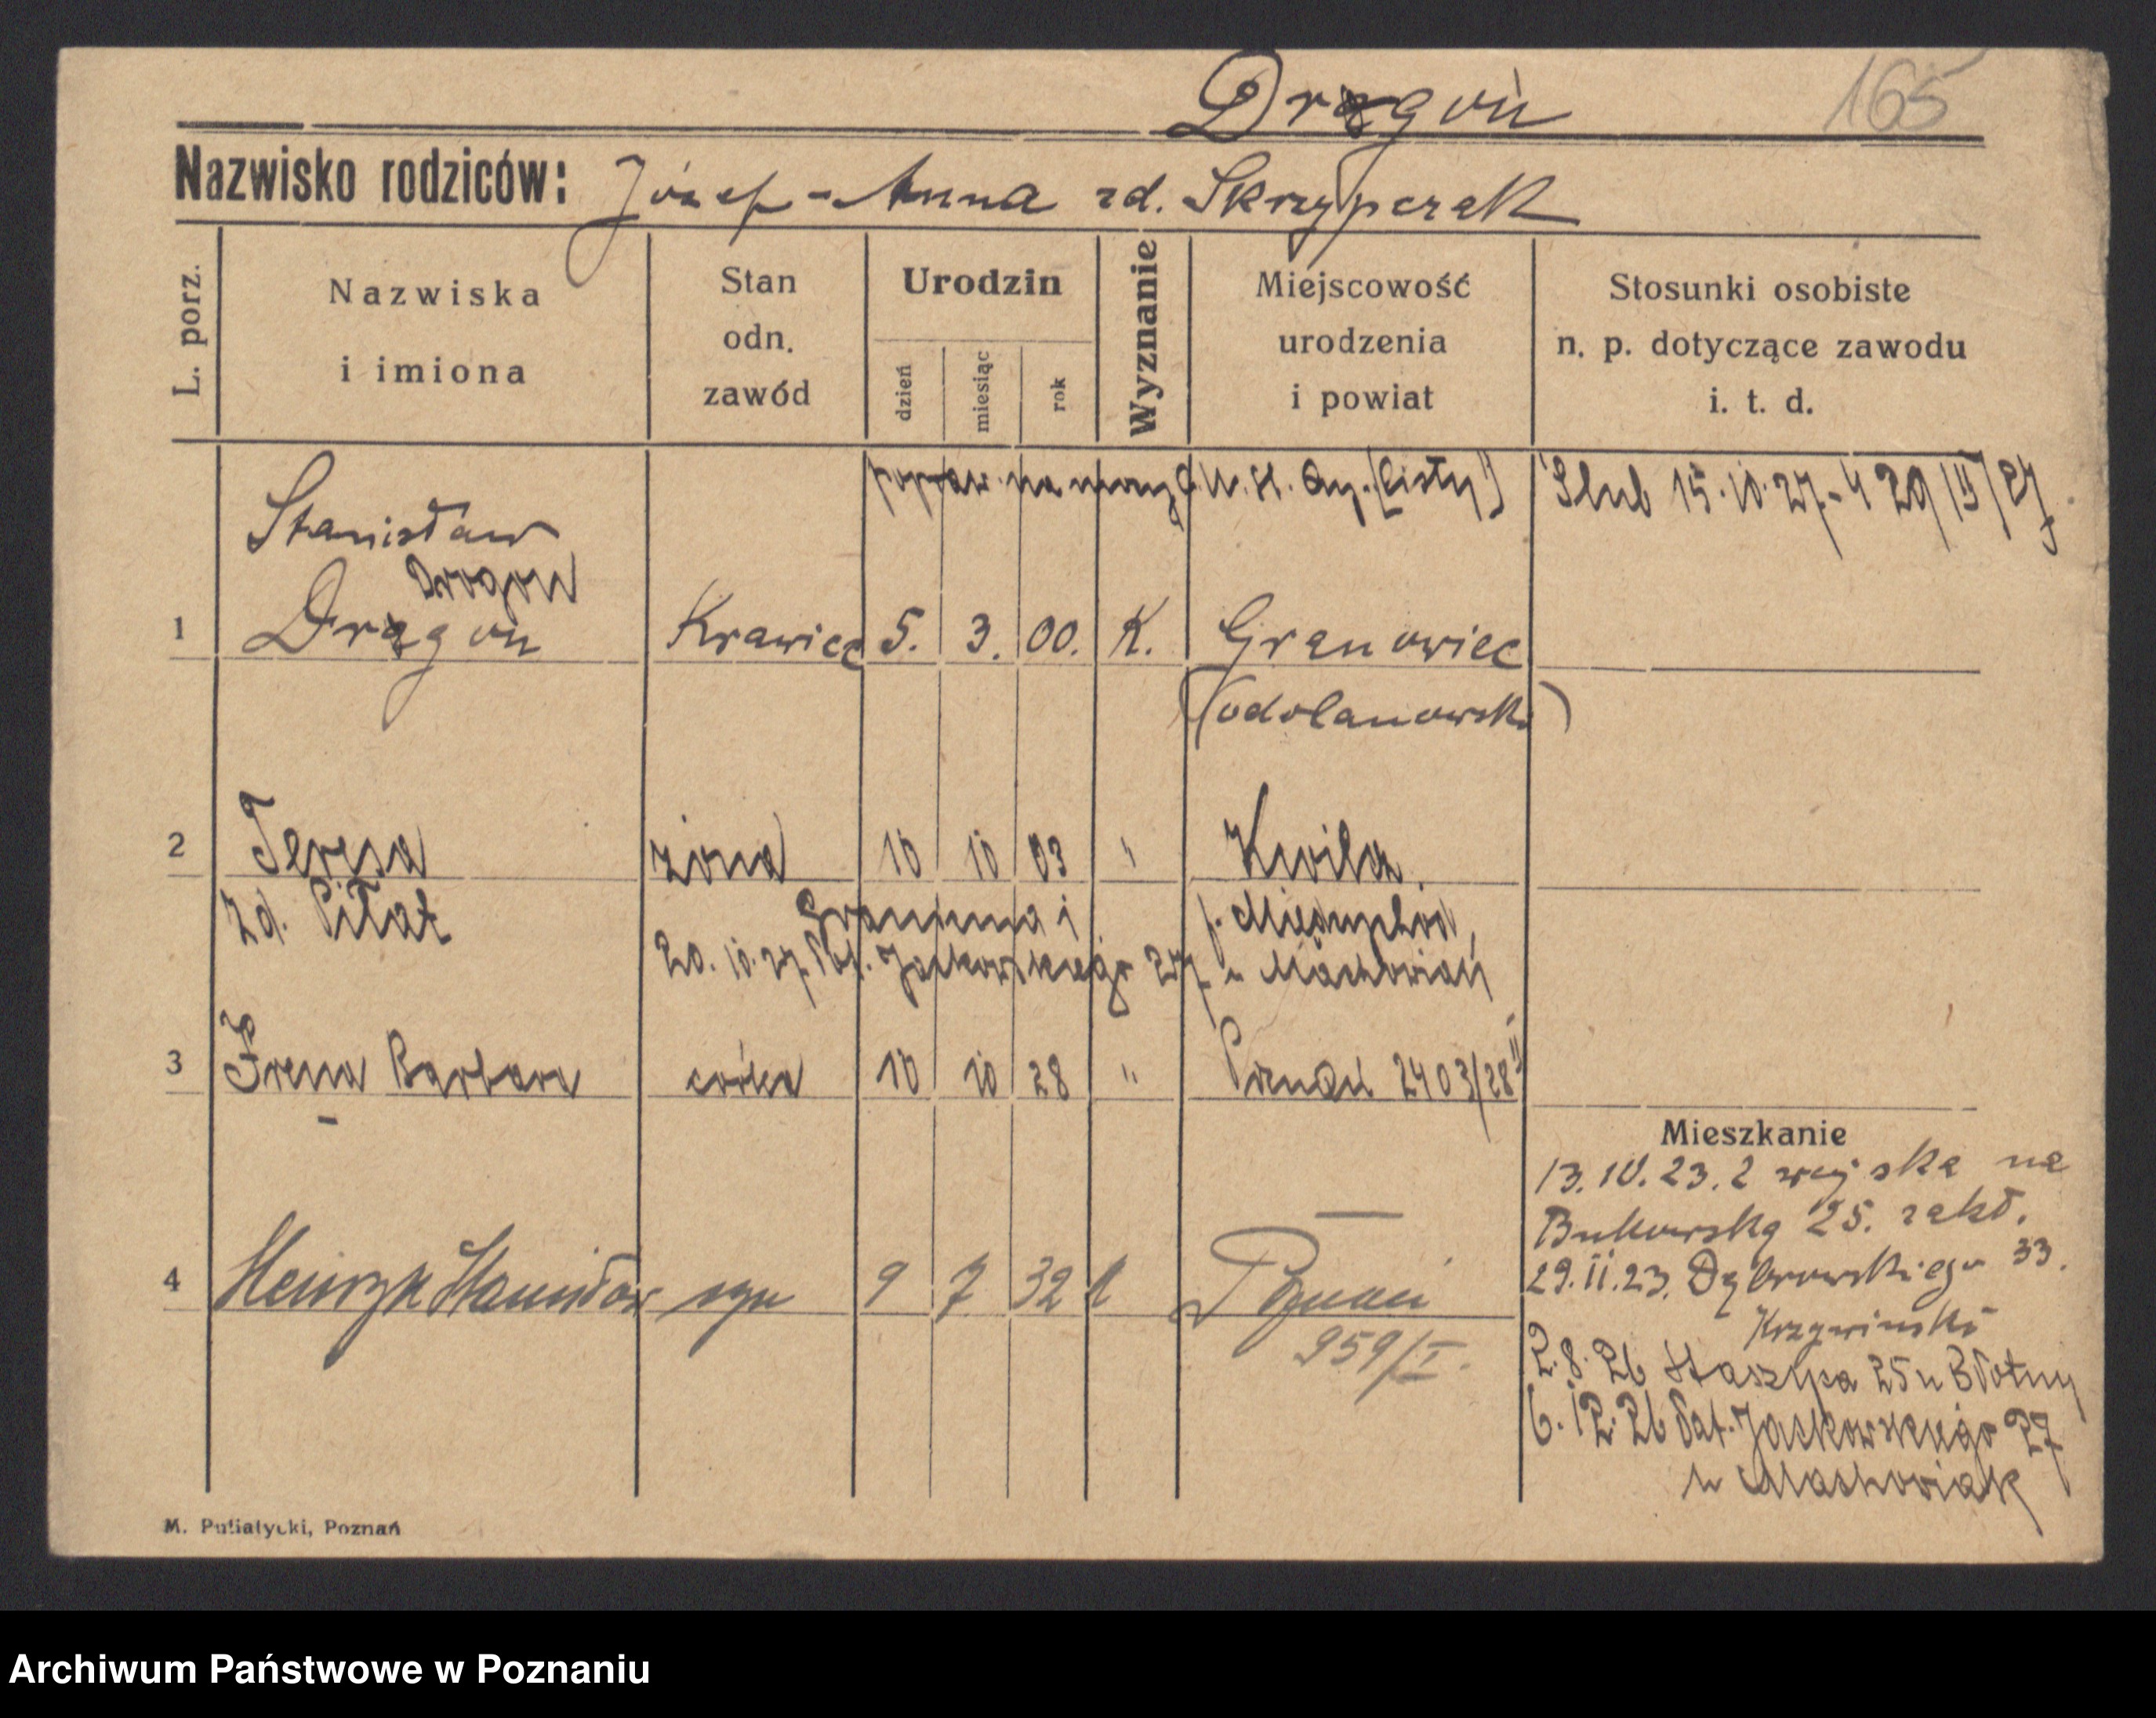 Dragon
165
Nazwisko rodziców: Józef - Anna zd. Skrzypczak
L. porz.
Nazwiska i imiona
Stan odn. zawód
Urodzin
dzień miesiąc rok
Wyznanie
Miejscowość urodzenia i powiat
Stosunki osobiste n. p. dotyczące zawodu i. t. d.
popraw. na
Ślub 15.10.27.
Stanisław
Drogon
1 Dragon Krawiec 5. 3. 00. K. Granowiec
(odolanowski)
2 Teresa żona 10 10 03 " Kwilcz.
zd. Piłat p. Międzychód
20.10.27. Jackowskiego 27
3 Irena Barbara córka 10 10 28 " Poznań 2403/28 II
Mieszkanie
13.10.23. z wojska na
Bukowską 25. zakł.
29.11.23. Dąbrowskiego 33.
Krzywiński
4 Henryk Stanisław syn 9 7 32 k Poznań
959/I.
2.8.26 Staszyca 25 u Błotny
6.12.26 Pat. Jackowskiego 27
u Maćkowiak
M. Putiatycki, Poznań
Archiwum Państwowe w Poznaniu